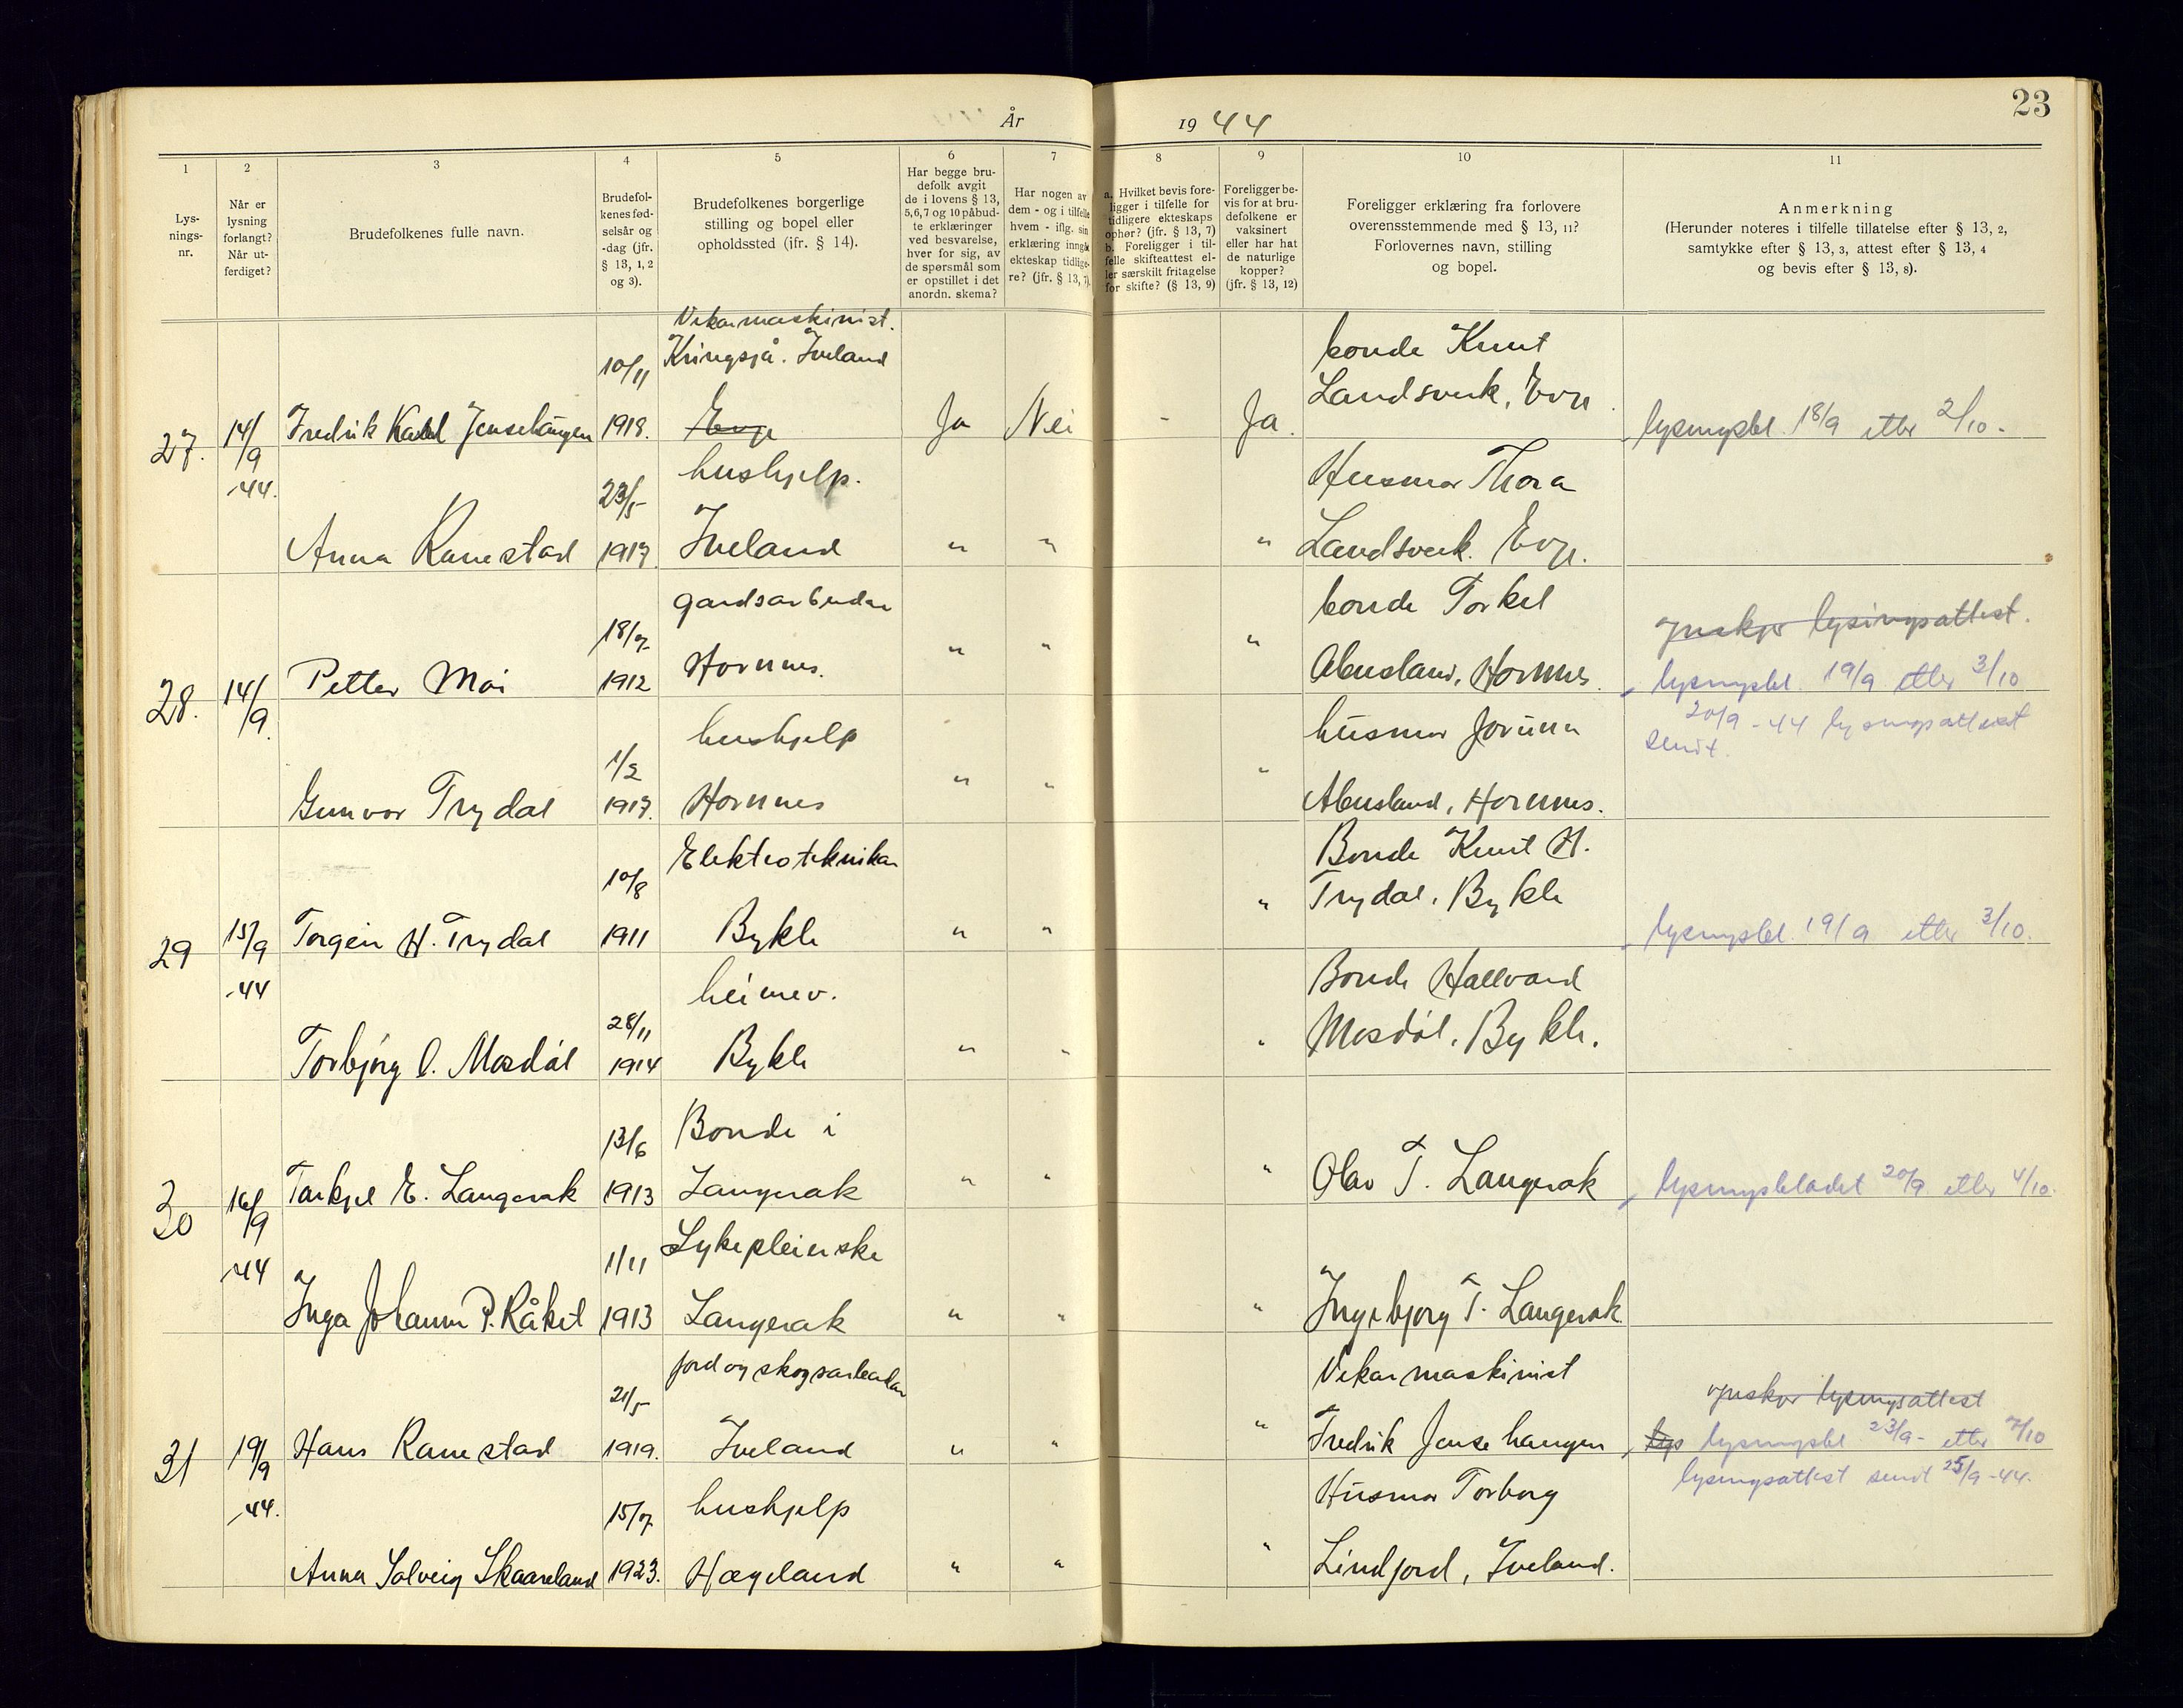 23
År 1944
1 2 3 4 5 6 7 8 9 10 11
Lys-
nings-
nr.
Når er
lysning
forlangt?
Når ut-
ferdiget?
Brudefolkenes fulle navn.
Brudefol-
kenes fød-
selsår og
-dag (jfr.
§ 13, 1, 2
og 3).
Brudefolkenes borgerlige
stilling og bopel eller
opholdssted (ifr. § 14).
Har begge bru-
defolk avgit
de i lovens § 13,
5,6,7 og 10 påbud-
te erklæringer
ved besvarelse,
hver for sig, av
de spørsmål som
er opstillet i det
anordn. skema?
Har nogen av
dem - og i tilfelle
hvem - iflg. sin
erklæring inngåt
ekteskap tidlige-
re? (jfr. § 13, 7)
a. Hvilket bevis fore-
ligger i tilfelle for
tidligere ekteskaps
ophør? (jfr. § 13, 7)
b. Foreligger i til-
felle skifteattest el-
ler særskilt fritagelse
for skifte? (§ 13, 9)
Foreligger be-
vis for at bru-
defolkene er
vaksinert
eller har hat
de naturlige
kopper?
(jfr. § 13, 12)
Foreligger erklæring fra forlovere
overensstemmende med § 13, 11?
Forlovernes navn, stilling
og bopel.
Anmerkning
(Herunder noteres i tilfelle tillatelse efter § 13, 2,
samtykke efter § 13, 3, attest efter § 13, 4
og bevis efter § 13, 8).
27. 14/9 -44.
Fredrik Jensehaugen
10/11 1918.
Vikarmaskinist.
Kringsjå. Iveland
Evje
Ja Nei - Ja.
bonde Knut
Landsverk, Evje.
lysingsbl. 18/9 etter 2/10.
Anna Ranestad
23/5 1917.
hushjelp.
Iveland
" " "
Husmor Thora
Landsverk. Evje.
28. 14/9.
Petter Moi
18/7 1912
gardsarbeidar
Hornnes.
" " "
bonde Torkel
Abusland, Hornnes.
ynskjer lysingsattest.
lysingsbl. 19/9 etter 3/10
20/9 - 44 lysingsattest
sendt.
Gunvor Trydal
1/2 1917.
hushjelp
Hornnes
" " "
husmor Jorunn
Abusland, Hornnes.
29 15/9 -44
Torgeir H. Trydal
10/8 1911
Elektroteknikar
Bykle
" " "
Bonde Knut H.
Trydal, Bykle
lysingsbl. 19/9 etter 3/10.
Torbjørg O. Mosdøl
28/11 1914
heimev.
Bykle
" " "
Bonde Hallvard
Mosdøl, Bykle.
30 16/9 -44
Tarkjel E. Langerak
13/6 1913
Bonde i
Langerak
" " "
Olav T. Langerak
lysingsbladet 20/9 etter 4/10.
Inga Johanne P. Råket
1/11 1913
Sykepleierske
Langerak
" " "
Ingebjørg T. Langerak
31 19/9 -44.
Hans Ranestad
21/5 1919.
jord og skogsarbeidar
Iveland
" " "
Vikarmaskinist
Fredrik Jensehaugen
ynskjer lysingsattest
lys lysingsbl 23/9 - etter 7/10
lysingsattest sendt 25/9-44.
Anna Solveig Skaareland
15/7 1923.
hushjelp
Hægeland
" " "
Husmor Torborg
Lindjord, Iveland.